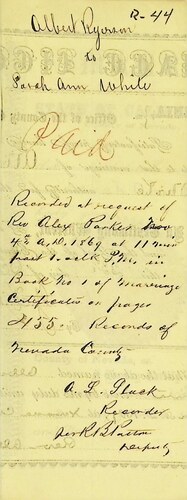 R-44
Albert Ryerson
to
Sarah Ann White
Paid
Recorded at request of
Rev Alex Parker Nov
4th A.D. 1869 at 11 min
past 1 oclk P.M. in
Book No 1 of Marriage
Certificates on pages
455. Records of
Nevada County
A. L.
Recorder
per R B Patton
Deputy